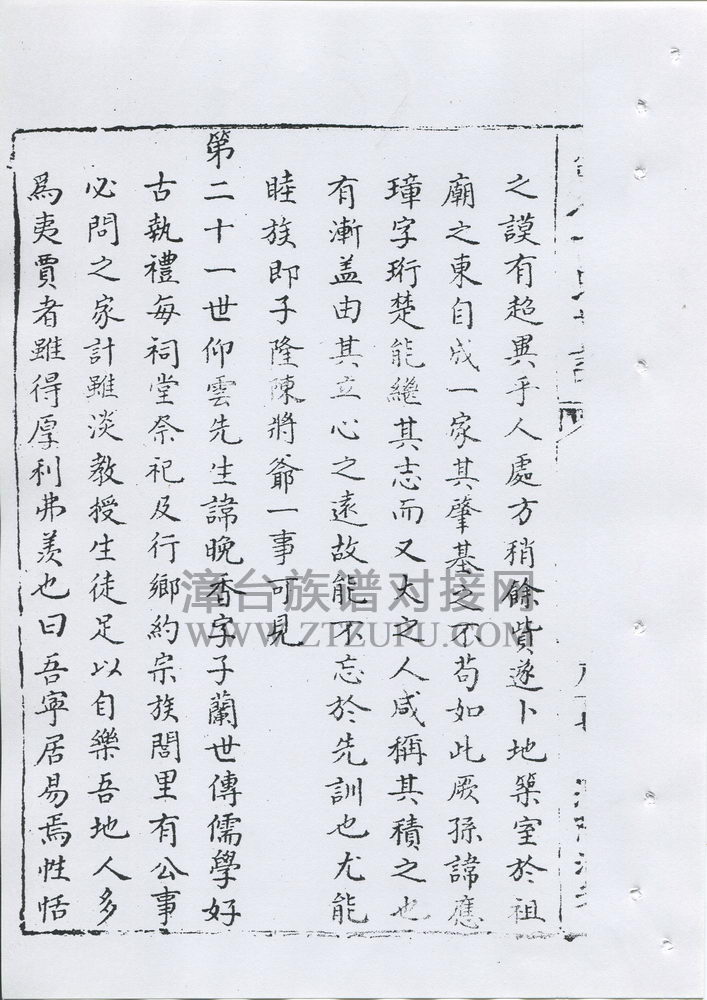 之謨有超異乎人處方稍餘貲遂卜地築室於祖
廟之東自成一家其肇基之不苟如此厥孫諱應
璋字珩楚能繼其志而又大之人咸稱其積之也
有漸盖由其立心之遠故能不忘於先訓也尤能
睦族即子隆陳將爺一事可見
第二十一世仰雲先生諱晚香字子蘭世傳儒學好
古執禮每祠堂祭祀及行鄉約宗族閭里有公事
必問之家計雖淡教授生徒足以自樂吾地人多
為夷賈者雖得厚利弗羨也曰吾寧居易焉性恬
漳台族谱对接网
WWW.ZTZUPU.COM